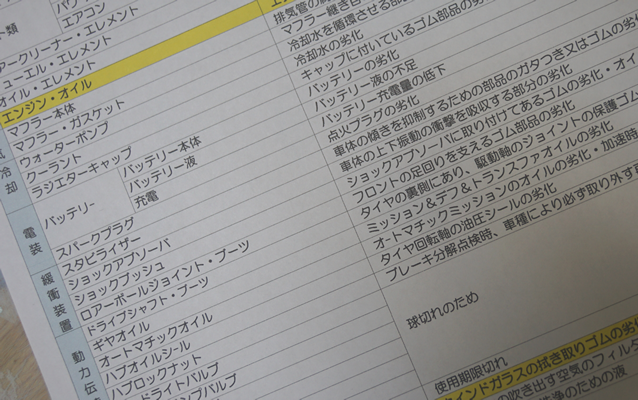 ト類
エアコン
アークリーナー・エレメント
ューエル・エレメント
オイル・エレメント
エンジン・オイル
マフラー本体
排気管の
マフラー・ガスケット
マフラー継ぎ目
冷却
ウォーターポンプ
冷却水を循環させる部
クーラント
冷却水の劣化
ラジエターキャップ
キャップに付いているゴム部品の劣
電装
バッテリー
バッテリー本体
バッテリーの劣化
バッテリー液
バッテリー液の不足
充電
バッテリー充電量の低下
スパークプラグ
点火プラグの劣化
緩衝装置
スタビライザー
車体の傾きを抑制するための部品のガタつき又はゴムの劣
ショックアブソーバ
車体の上下振動の衝撃を吸収する部分の劣化
ショックブッシュ
ショックアブソーバに取り付けてあるゴムの劣化・オイ
ロアーボールジョイント・ブーツ
フロントの足回りを支えるゴム部品の劣化
ドライブシャフト・ブーツ
タイヤの裏側にあり、駆動軸のジョイントの保護ゴム
動力伝
ギヤオイル
ミッション&デフ&トランスファオイルの劣化
オートマチックオイル
オートマチックミッションのオイルの劣化・加速時
ハブオイルシール
タイヤ回転軸の油圧シールの劣化
ハブロックナット
ブレーキ分解点検時、車種により必ず取り外す
ドライトバルブ
ンプバルブ
球切れのため
使用期限切れ
インドガラスの拭き取りゴムの劣化
の吹き出す空気のフィルタ
浄のための液